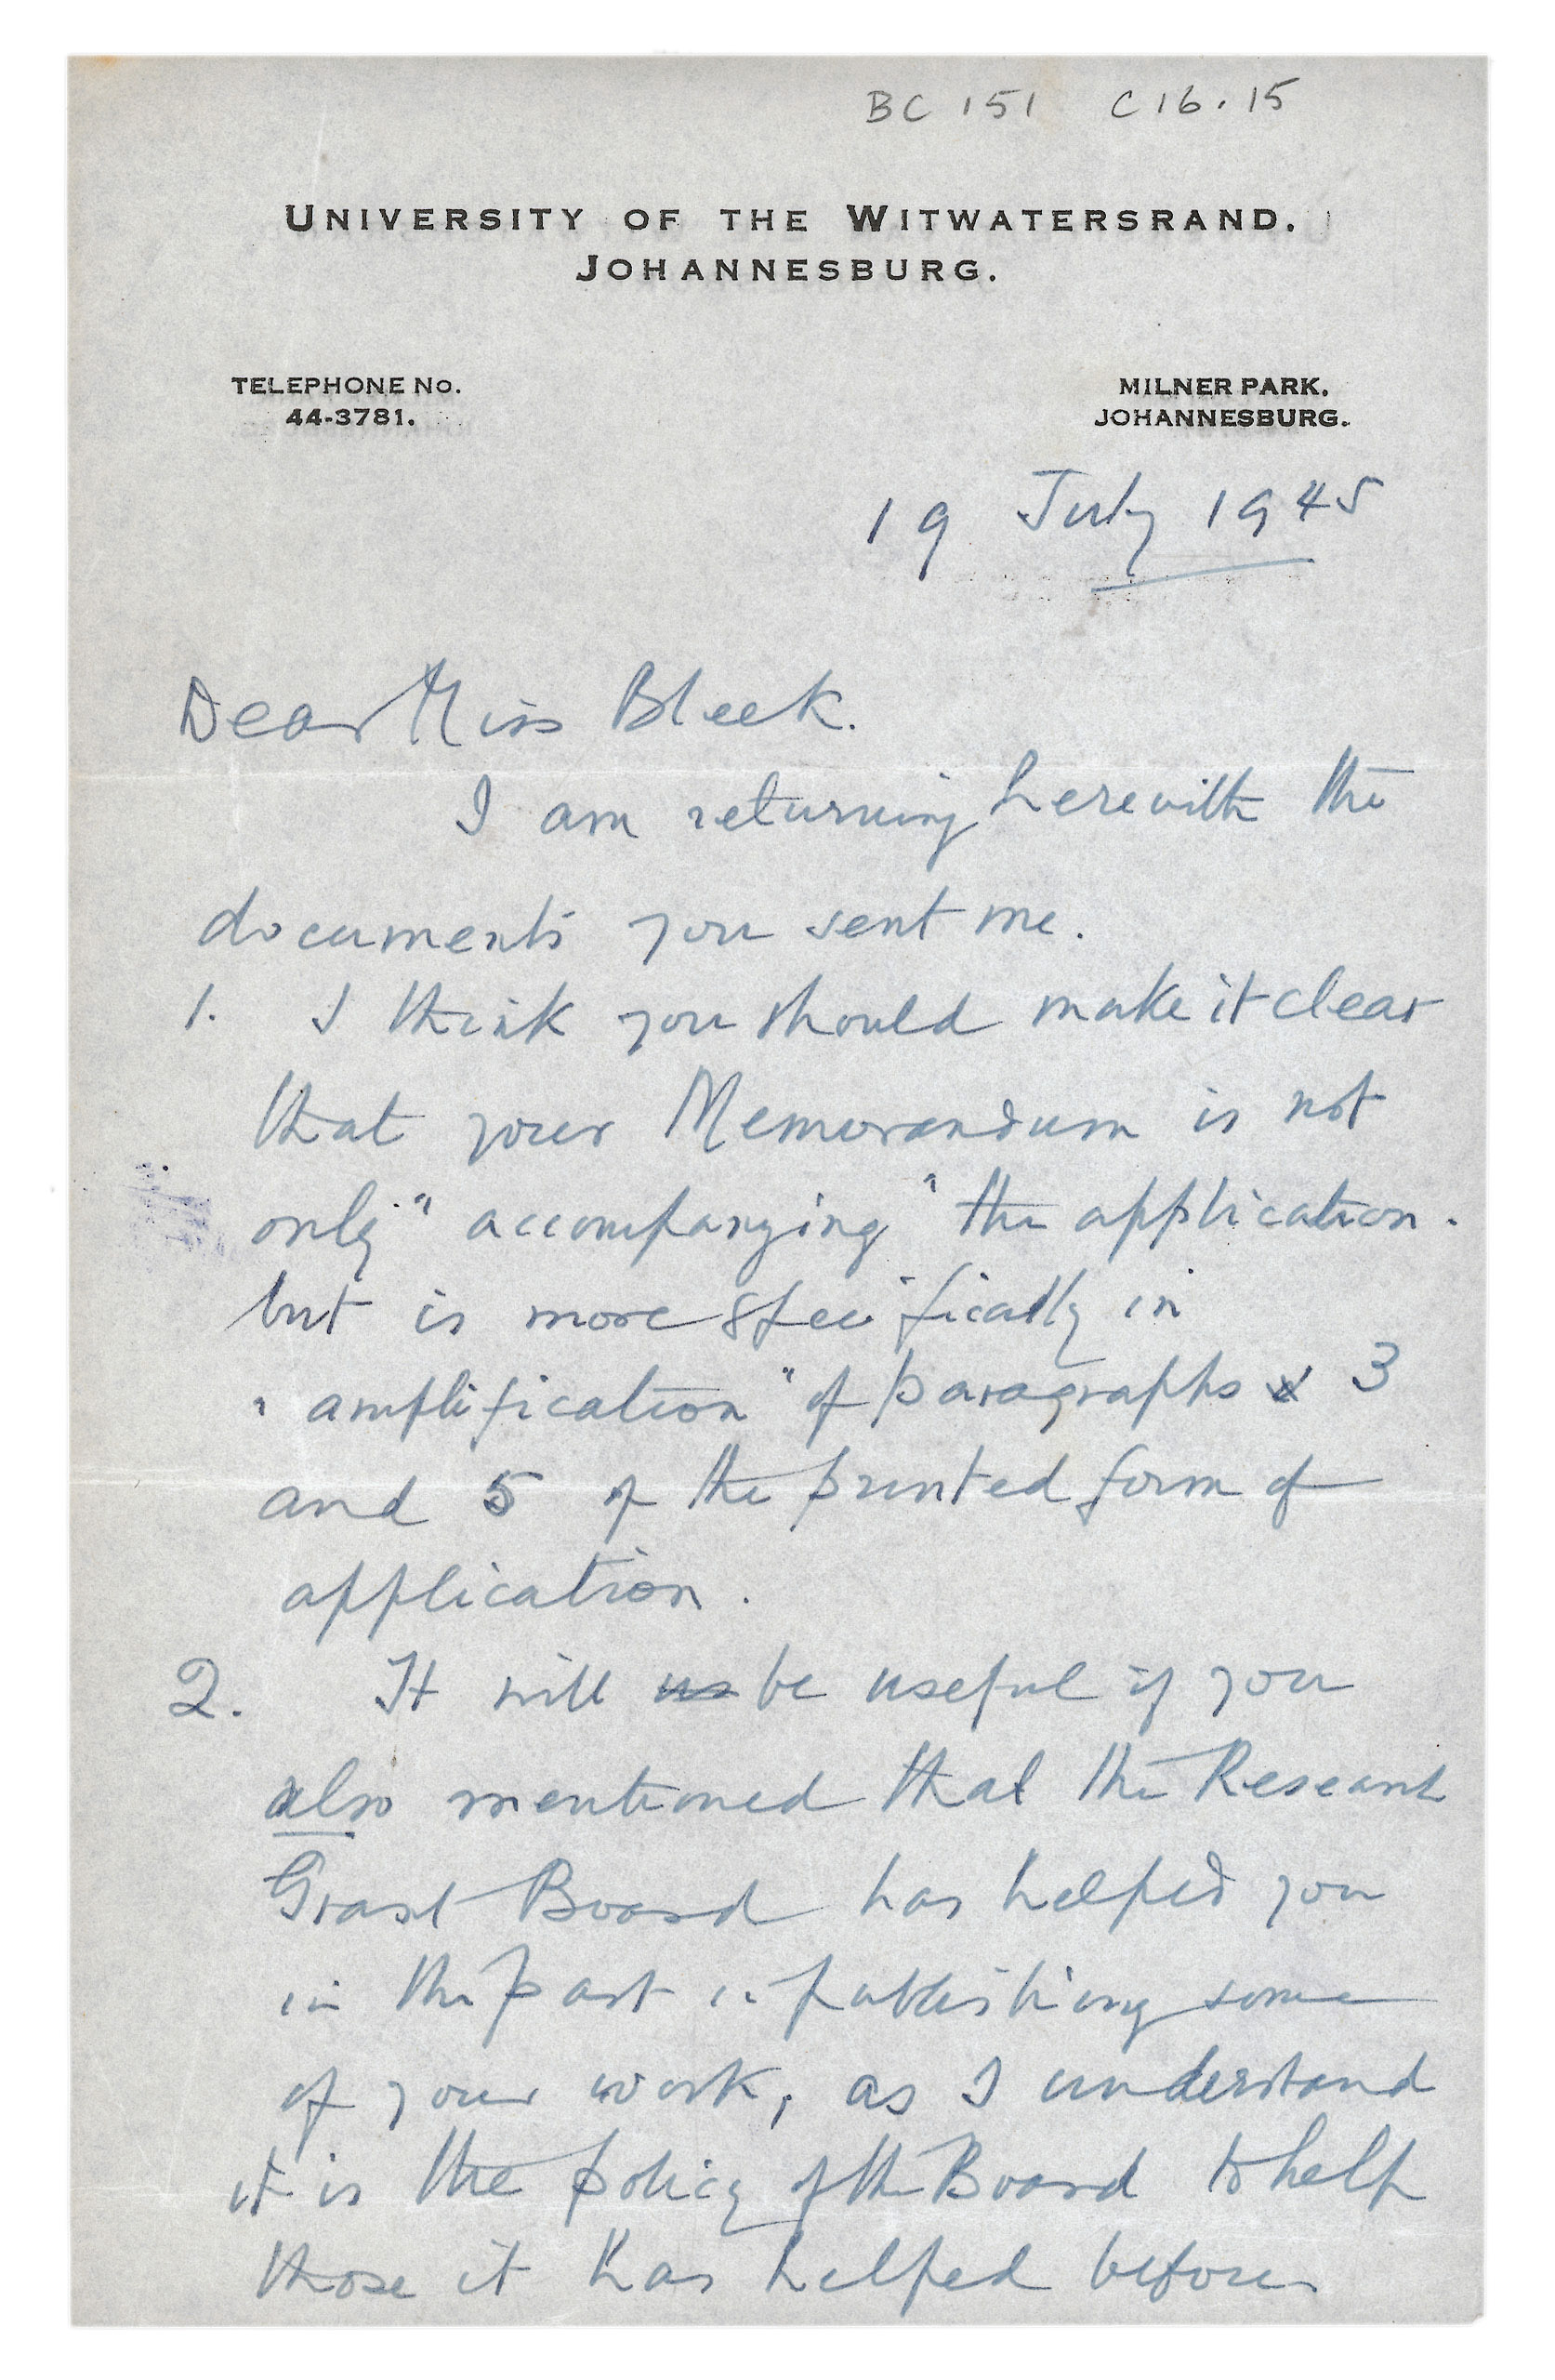 BC 151 C16.15
UNIVERSITY OF THE WITWATERSRAND.
JOHANNESBURG.
TELEPHONE No.
44-3781.
MILNER PARK.
JOHANNESBURG.
19 July 1945
Dear Miss Bleek.
I am returning herewith the
documents you sent me.
1. I think you should make it clear
that your Memorandum is not
only "accompanying" the application.
but is more specifically in
"amplification" of paragraphs 3
and 5 of the printed form of
application.
2. It will us be useful if you
also mentioned that the Research
Grant Board has helped you
in the past in publishing some
of your work, as I understand
it is the policy of the Board to help
those it has helped before